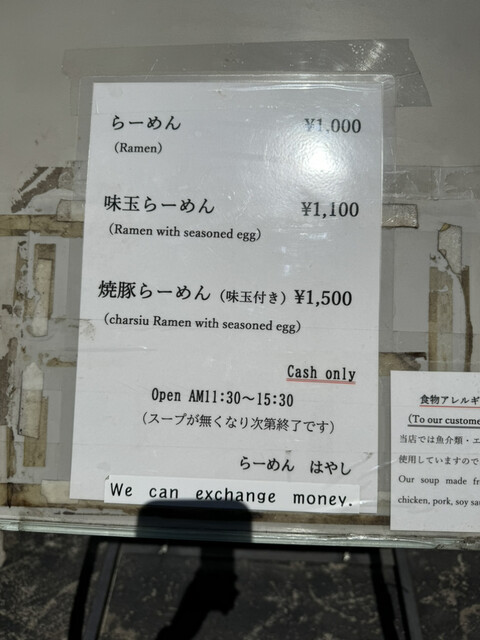 らーめん ¥1,000
(Ramen)
味玉らーめん ¥1,100
(Ramen with seasoned egg)
焼豚らーめん(味玉付き) ¥1,500
(charsiu Ramen with seasoned egg)
Cash only
Open AM11:30~15:30
(スープが無くなり次第終了です)
らーめん はやし
We can exchange money.
食物アレルギ
(To our custome
当店では魚介類・エ
使用していますので
Our soup made fr
chicken, pork, soy sau